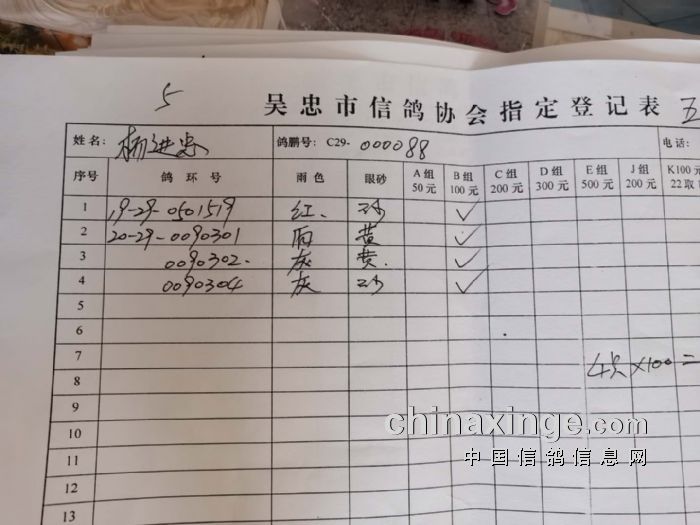 5
吴忠市信鸽协会指定登记表 五
姓名: 杨进忠 鸽鹏号: C29- 000088 电话:
序号 鸽环号 雨色 眼砂 A组 50元 B组 100元 C组 200元 D组 300元 E组 500元 J组 200元 K100元 22取
1 19-29-0501519 红、 砂 ✓
2 20-29-0090301 雨 黄 ✓
3 0090302. 灰 黄. ✓
4 0090304 灰 砂 ✓
5
6
7 4只×100=
8
9
10
11
12
13
chinaxinge.com
中国信鸽信息网